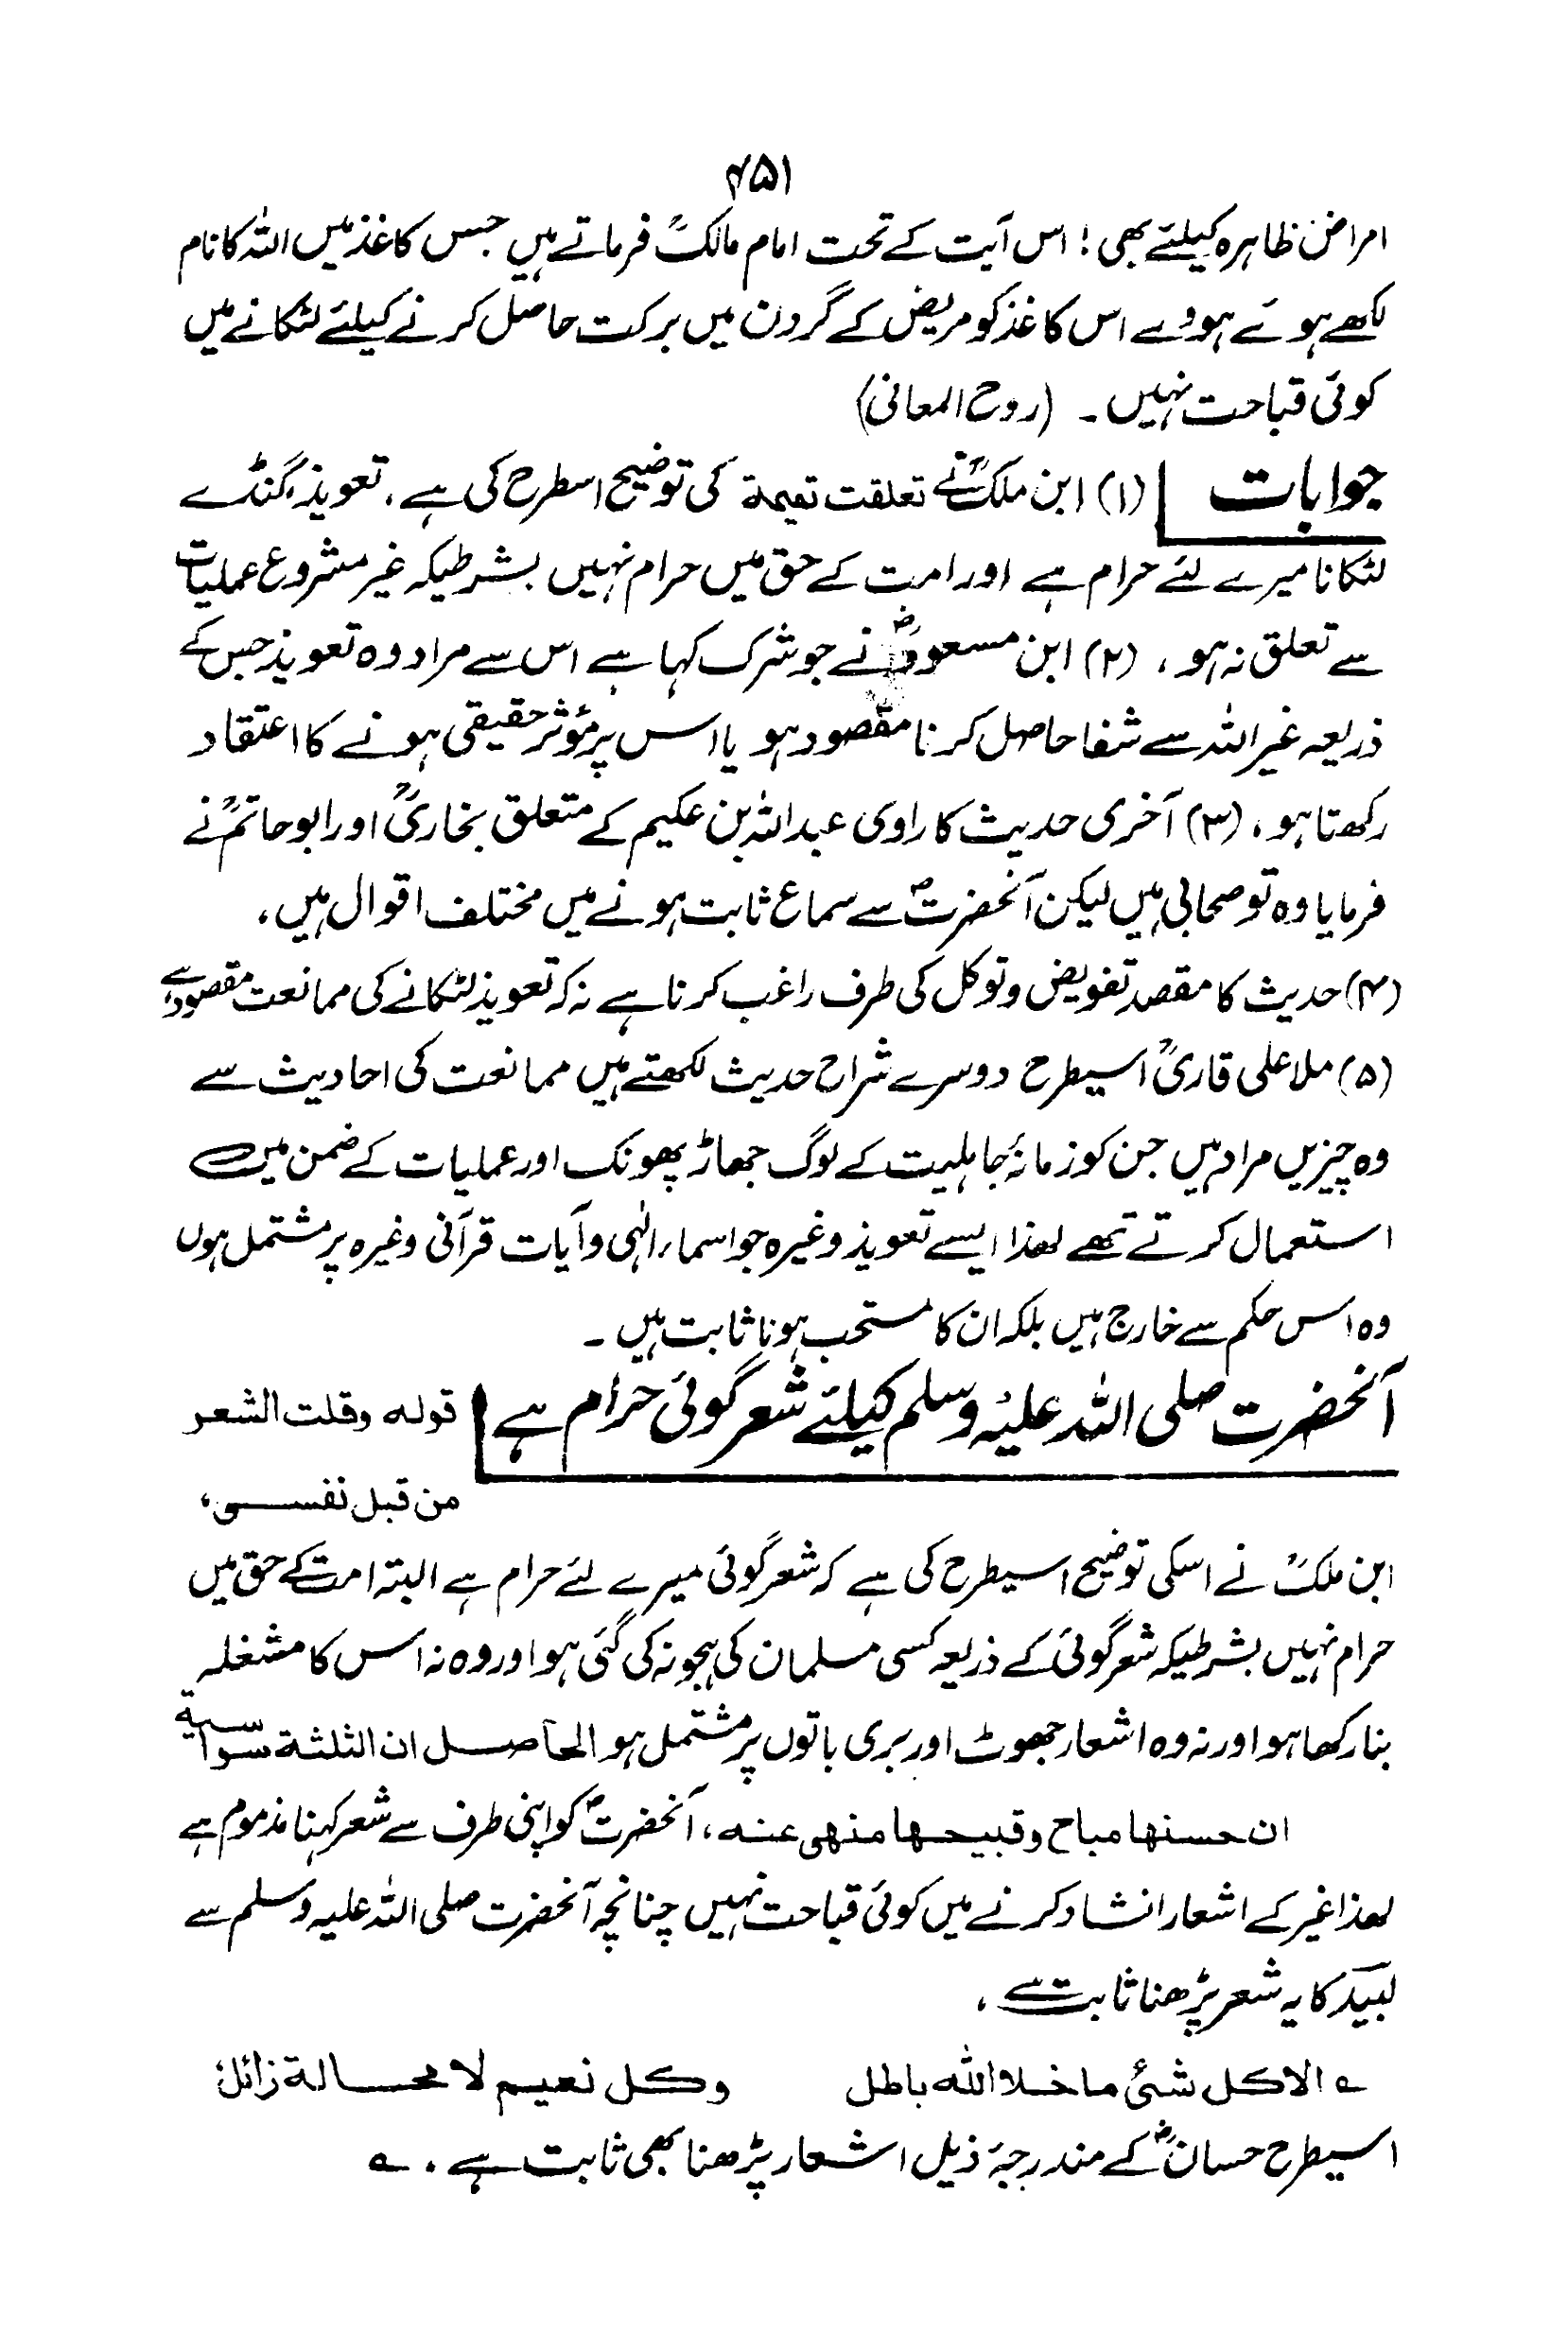 ۴۵۱
امراض ظاہرہ کیلئے بھی ! اس آیت کے تحت امام مالکؒ فرماتے ہیں جس کاغذ میں اللہ کا نام
لکھے ہوئے ہووے اس کاغذ کو مریض کے گردن میں برکت حاصل کرنے کیلئے لٹکانے میں
کوئی قباحت نہیں ۔ (روح المعانی)
جوابات (۱) ابن ملکؒ نے تعلقت تمیمة کی توضیح اسطرح کی ہے ، تعویذ، گنڈے
لٹکانا میرے لئے حرام ہے اور امت کے حق میں حرام نہیں بشرطیکہ غیر مشروع عملیات
سے تعلق نہ ہو ، (۲) ابن مسعودؓ نے جو شرک کہا ہے اس سے مراد وہ تعویذ جس کے
ذریعہ غیر اللہ سے شفا حاصل کرنا مقصود ہو یا اس پر مؤثر حقیقی ہونے کا اعتقاد
رکھتا ہو ، (۳) آخری حدیث کا راوی عبداللہ بن عکیم کے متعلق بخاریؒ اور ابو حاتمؒ نے
فرمایا وہ تو صحابی ہیں لیکن آنحضرتؐ سے سماع ثابت ہونے میں مختلف اقوال ہیں ،
(۴) حدیث کا مقصد تفویض و توکل کی طرف راغب کرنا ہے نہ کہ تعویذ لٹکانے کی ممانعت مقصود ہے
(۵) ملا علی قاریؒ اسیطرح دوسرے شراح حدیث لکھتے ہیں ممانعت کی احادیث سے
وہ چیزیں مراد ہیں جن کو زمانۂ جاہلیت کے لوگ جھاڑ پھونک اور عملیات کے ضمن میں
استعمال کرتے تھے لھذا ایسے تعویذ وغیرہ جو اسماء الٰہی و آیات قرآنی وغیرہ پر مشتمل ہوں
وہ اس حکم سے خارج ہیں بلکہ ان کا مستحب ہونا ثابت ہیں ۔
آنحضرت صلی اللہ علیہ وسلم کیلئے شعر گوئی حرام ہے قوله وقلت الشعر
من قبل نفسی ،
ابن ملکؒ نے اسکی توضیح اسیطرح کی ہے کہ شعر گوئی میرے لئے حرام ہے البتہ امت کے حق میں
حرام نہیں بشرطیکہ شعر گوئی کے ذریعہ کسی مسلمان کی ہجو نہ کی گئی ہو اور وہ نہ اس کا مشغلہ
بنا رکھا ہو اور نہ وہ اشعار جھوٹ اور بری باتوں پر مشتمل ہو الحاصل ان الثلثة سواسیة
ان حسنها مباح وقبیحها منهی عنه ، آنحضرتؐ کو اپنی طرف سے شعر کہنا مذموم ہے
لھذا غیر کے اشعار انشاد کرنے میں کوئی قباحت نہیں چنانچہ آنحضرت صلی اللہ علیہ وسلم سے
لبید کا یہ شعر پڑھنا ثابت ہے ،
ے الا کل شئ ما خلا الله باطل وکل نعیم لا محالة زائل
اسیطرح حسانؓ کے مندرجۂ ذیل اشعار پڑھنا بھی ثابت ہے ۔ ے